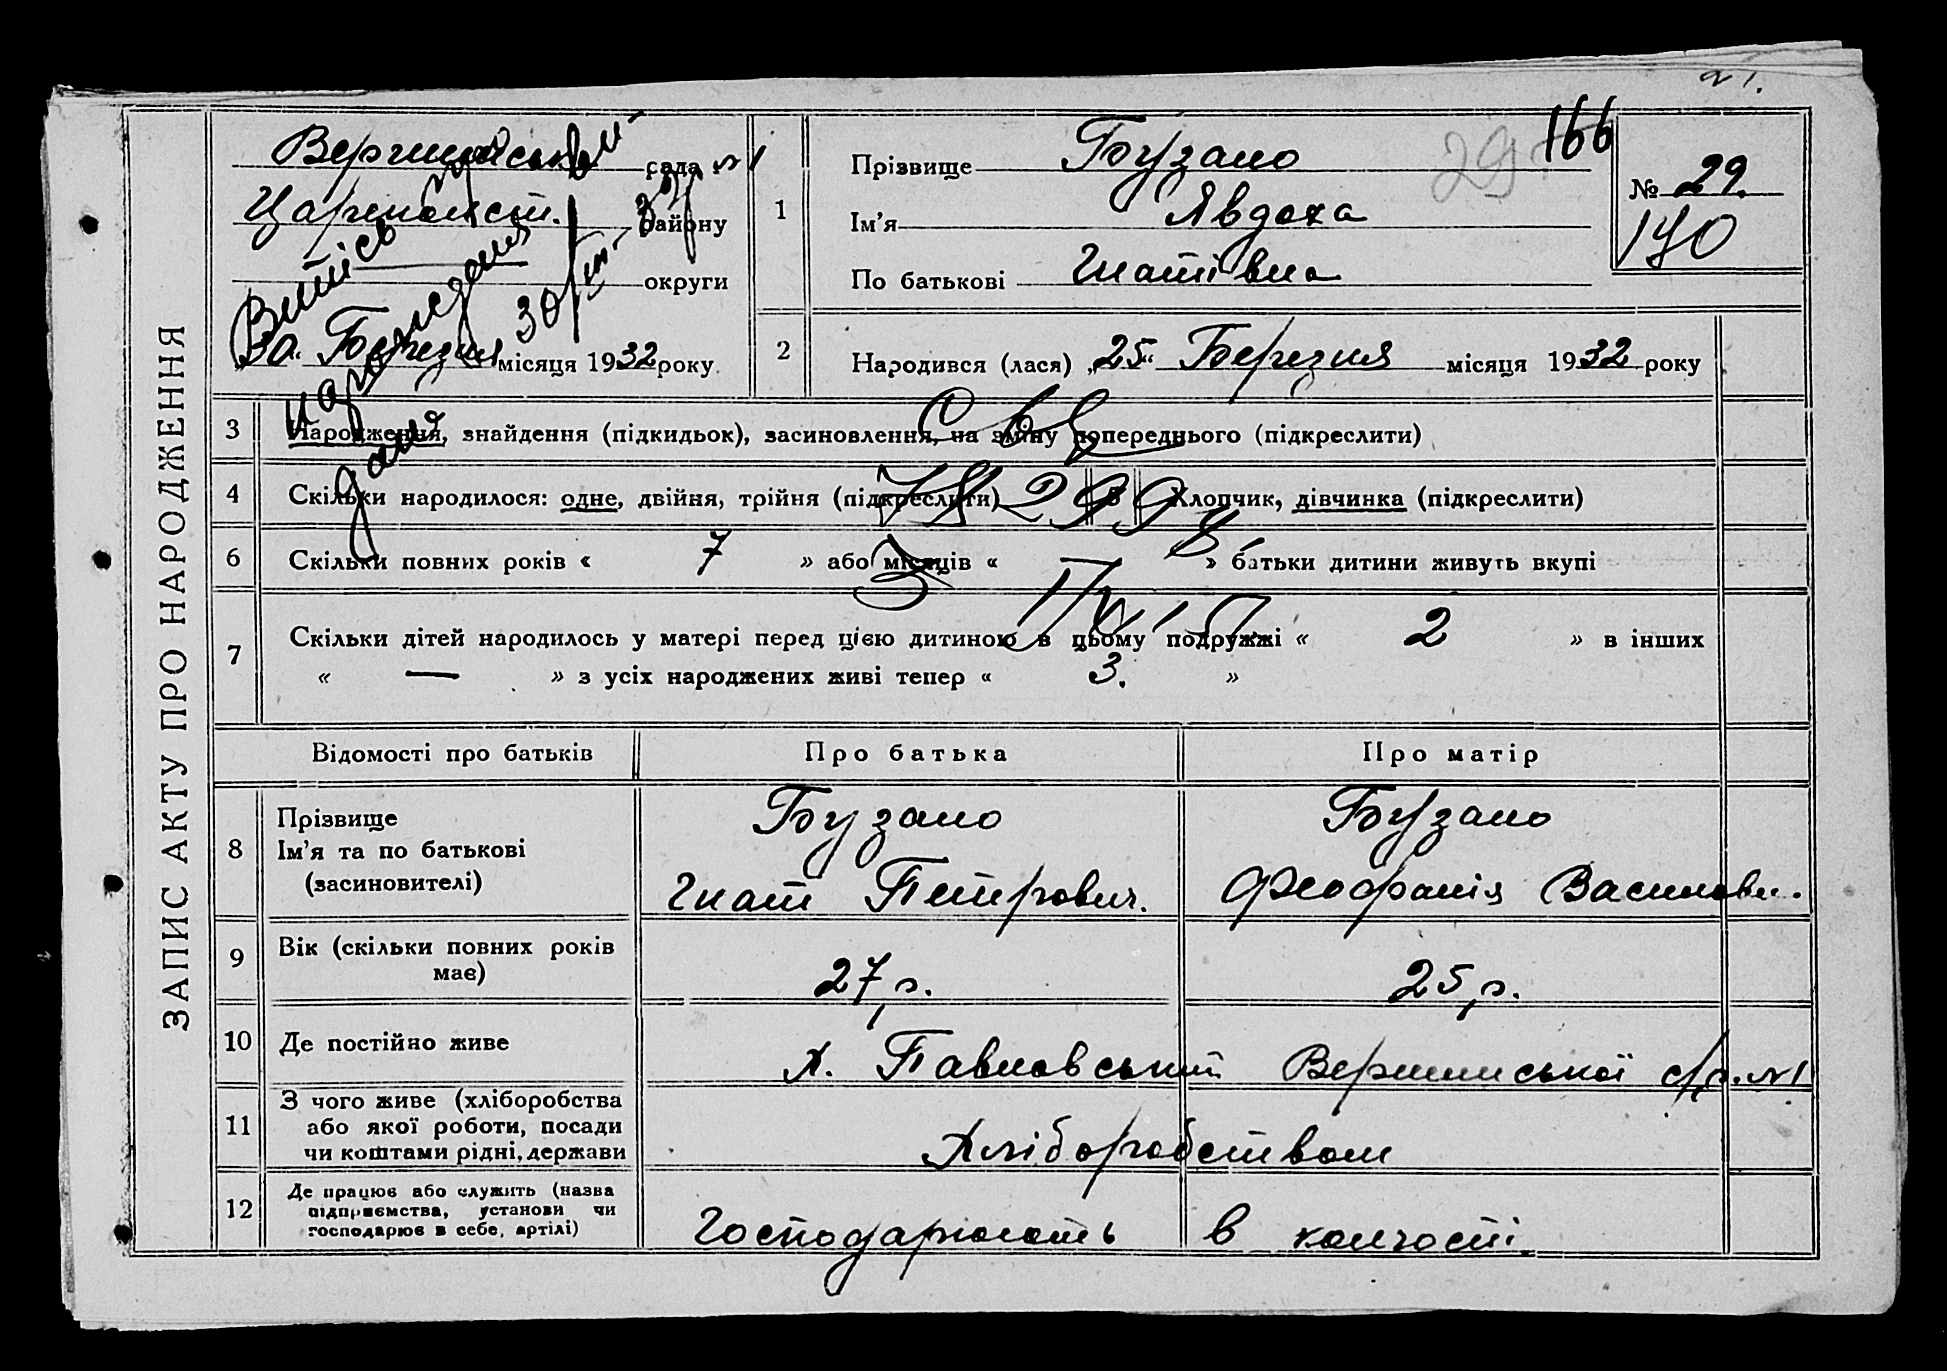 21.
ЗАПИС АКТУ ПРО НАРОДЖЕННЯ
сада №1
Царичанськ. району
округи
30. Березня місяця 1932 року
Випись народження
30/III
1
Прізвище Бузано
Ім'я Явдоха
По батькові Гнатівна
29
166
№ 29.
190
2
Народився (лася) „25“ Березня місяця 1932 року
3
Народження, знайдення (підкидьок), засиновлення, на зміну попереднього (підкреслити)
4
Скільки народилося: одне, двійня, трійня (підкреслити)
5
Хлопчик, дівчинка (підкреслити)
6
Скільки повних років « 7 » або місяців « » батьки дитини живуть вкупі
7
Скільки дітей народилось у матері перед цією дитиною в цьому подружжі « 2 » в інших
« — » з усіх народжених живі тепер « 3. »
Відомості про батьків
Про батька
Про матір
8
Прізвище
Ім'я та по батькові
(засиновителі)
Бузано
Гнат Петрович.
Бузано
Феофанія Василовн.
9
Вік (скільки повних років
має)
27, р.
25, р.
10
Де постійно живе
х. Павловський Вершинської с/р. №1
11
З чого живе (хліборобства
або якої роботи, посади
чи коштами рідні, держави
Хліборобством
12
Де працює або служить (назва
підприємства, установи чи
господарює в себе, артілі)
Господарюють в комгості